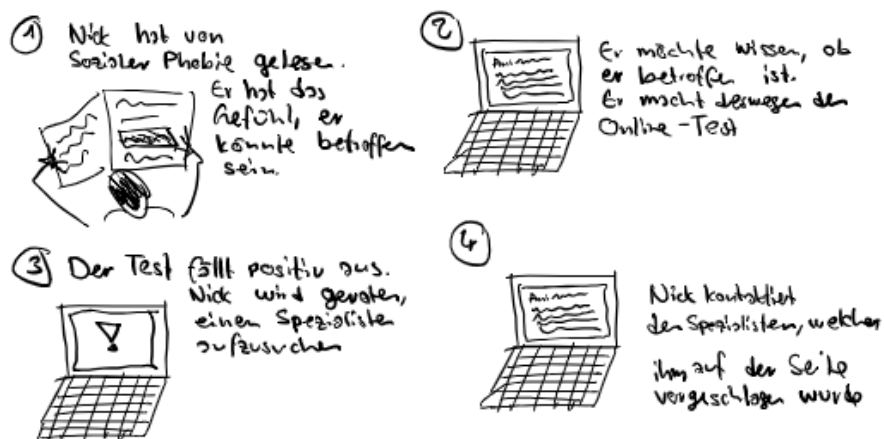 1 Nick hat von
Sozialer Phobie gelesen.
Er hat das
Gefühl, er
könnte betroffen
sein.
2 Er möchte wissen, ob
er betroffen ist.
Er macht deswegen den
Online-Test
3 Der Test fällt positiv aus.
Nick wird geraten,
einen Spezialisten
aufzusuchen
!
4 Nick kontaktiert
den Spezialisten, welcher
ihm auf der Seite
vorgeschlagen wurde